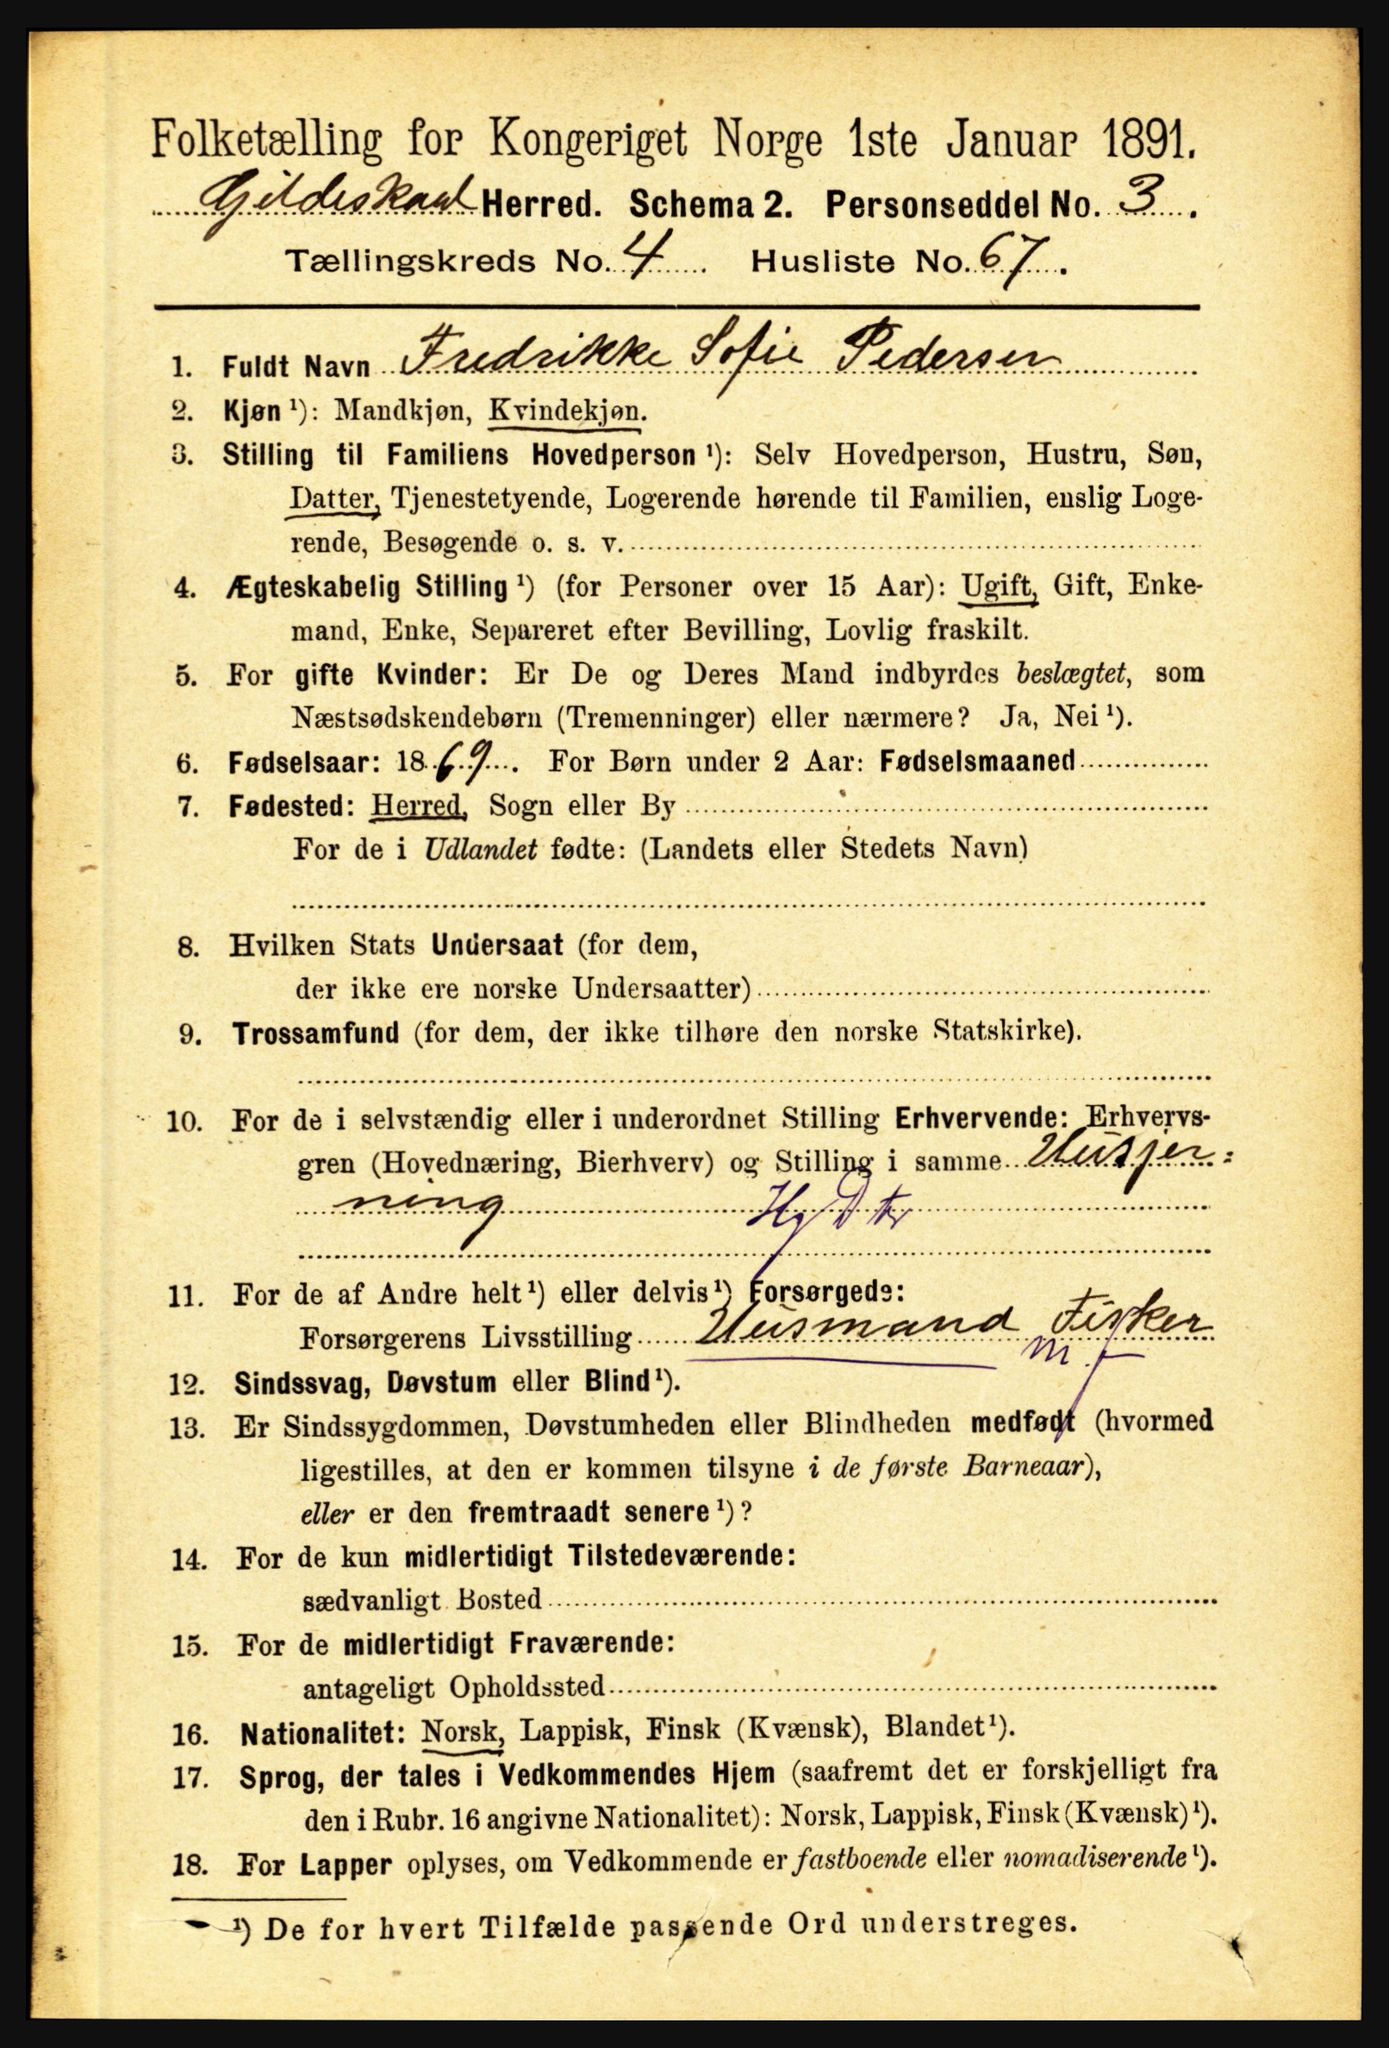 Folketælling for Kongeriget Norge 1ste Januar 1891.
Gildeskaal Herred. Schema 2. Personseddel No. 3.
Tællingskreds No. 4 Husliste No. 67.
1. Fuldt Navn Fredrikke Sofie Pedersen
2. Kjøn ¹): Mandkjøn, Kvindekjøn.
3. Stilling til Familiens Hovedperson ¹): Selv Hovedperson, Hustru, Søn,
Datter, Tjenestetyende, Logerende hørende til Familien, enslig Loge-
rende, Besøgende o. s. v.
4. Ægteskabelig Stilling ¹) (for Personer over 15 Aar): Ugift, Gift, Enke-
mand, Enke, Separeret efter Bevilling, Lovlig fraskilt.
5. For gifte Kvinder: Er De og Deres Mand indbyrdes beslægtet, som
Næstsødskendebørn (Tremenninger) eller nærmere? Ja, Nei ¹).
6. Fødselsaar: 1869. For Børn under 2 Aar: Fødselsmaaned
7. Fødested: Herred, Sogn eller By
For de i Udlandet fødte: (Landets eller Stedets Navn)
8. Hvilken Stats Undersaat (for dem,
der ikke ere norske Undersaatter)
9. Trossamfund (for dem, der ikke tilhøre den norske Statskirke).
10. For de i selvstændig eller i underordnet Stilling Erhvervende: Erhvervs-
gren (Hovednæring, Bierhverv) og Stilling i samme Husjer=
ning Hg Dtr
11. For de af Andre helt ¹) eller delvis ¹) Forsørgede:
Forsørgerens Livsstilling Husmand Fisker
m f
12. Sindssvag, Døvstum eller Blind ¹).
13. Er Sindssygdommen, Døvstumheden eller Blindheden medfødt (hvormed
ligestilles, at den er kommen tilsyne i de første Barneaar),
eller er den fremtraadt senere ¹)?
14. For de kun midlertidigt Tilstedeværende:
sædvanligt Bosted
15. For de midlertidigt Fraværende:
antageligt Opholdssted
16. Nationalitet: Norsk, Lappisk, Finsk (Kvænsk), Blandet ¹).
17. Sprog, der tales i Vedkommendes Hjem (saafremt det er forskjelligt fra
den i Rubr. 16 angivne Nationalitet): Norsk, Lappisk, Finsk (Kvænsk) ¹).
18. For Lapper oplyses, om Vedkommende er fastboende eller nomadiserende ¹).
¹) De for hvert Tilfælde passende Ord understreges.